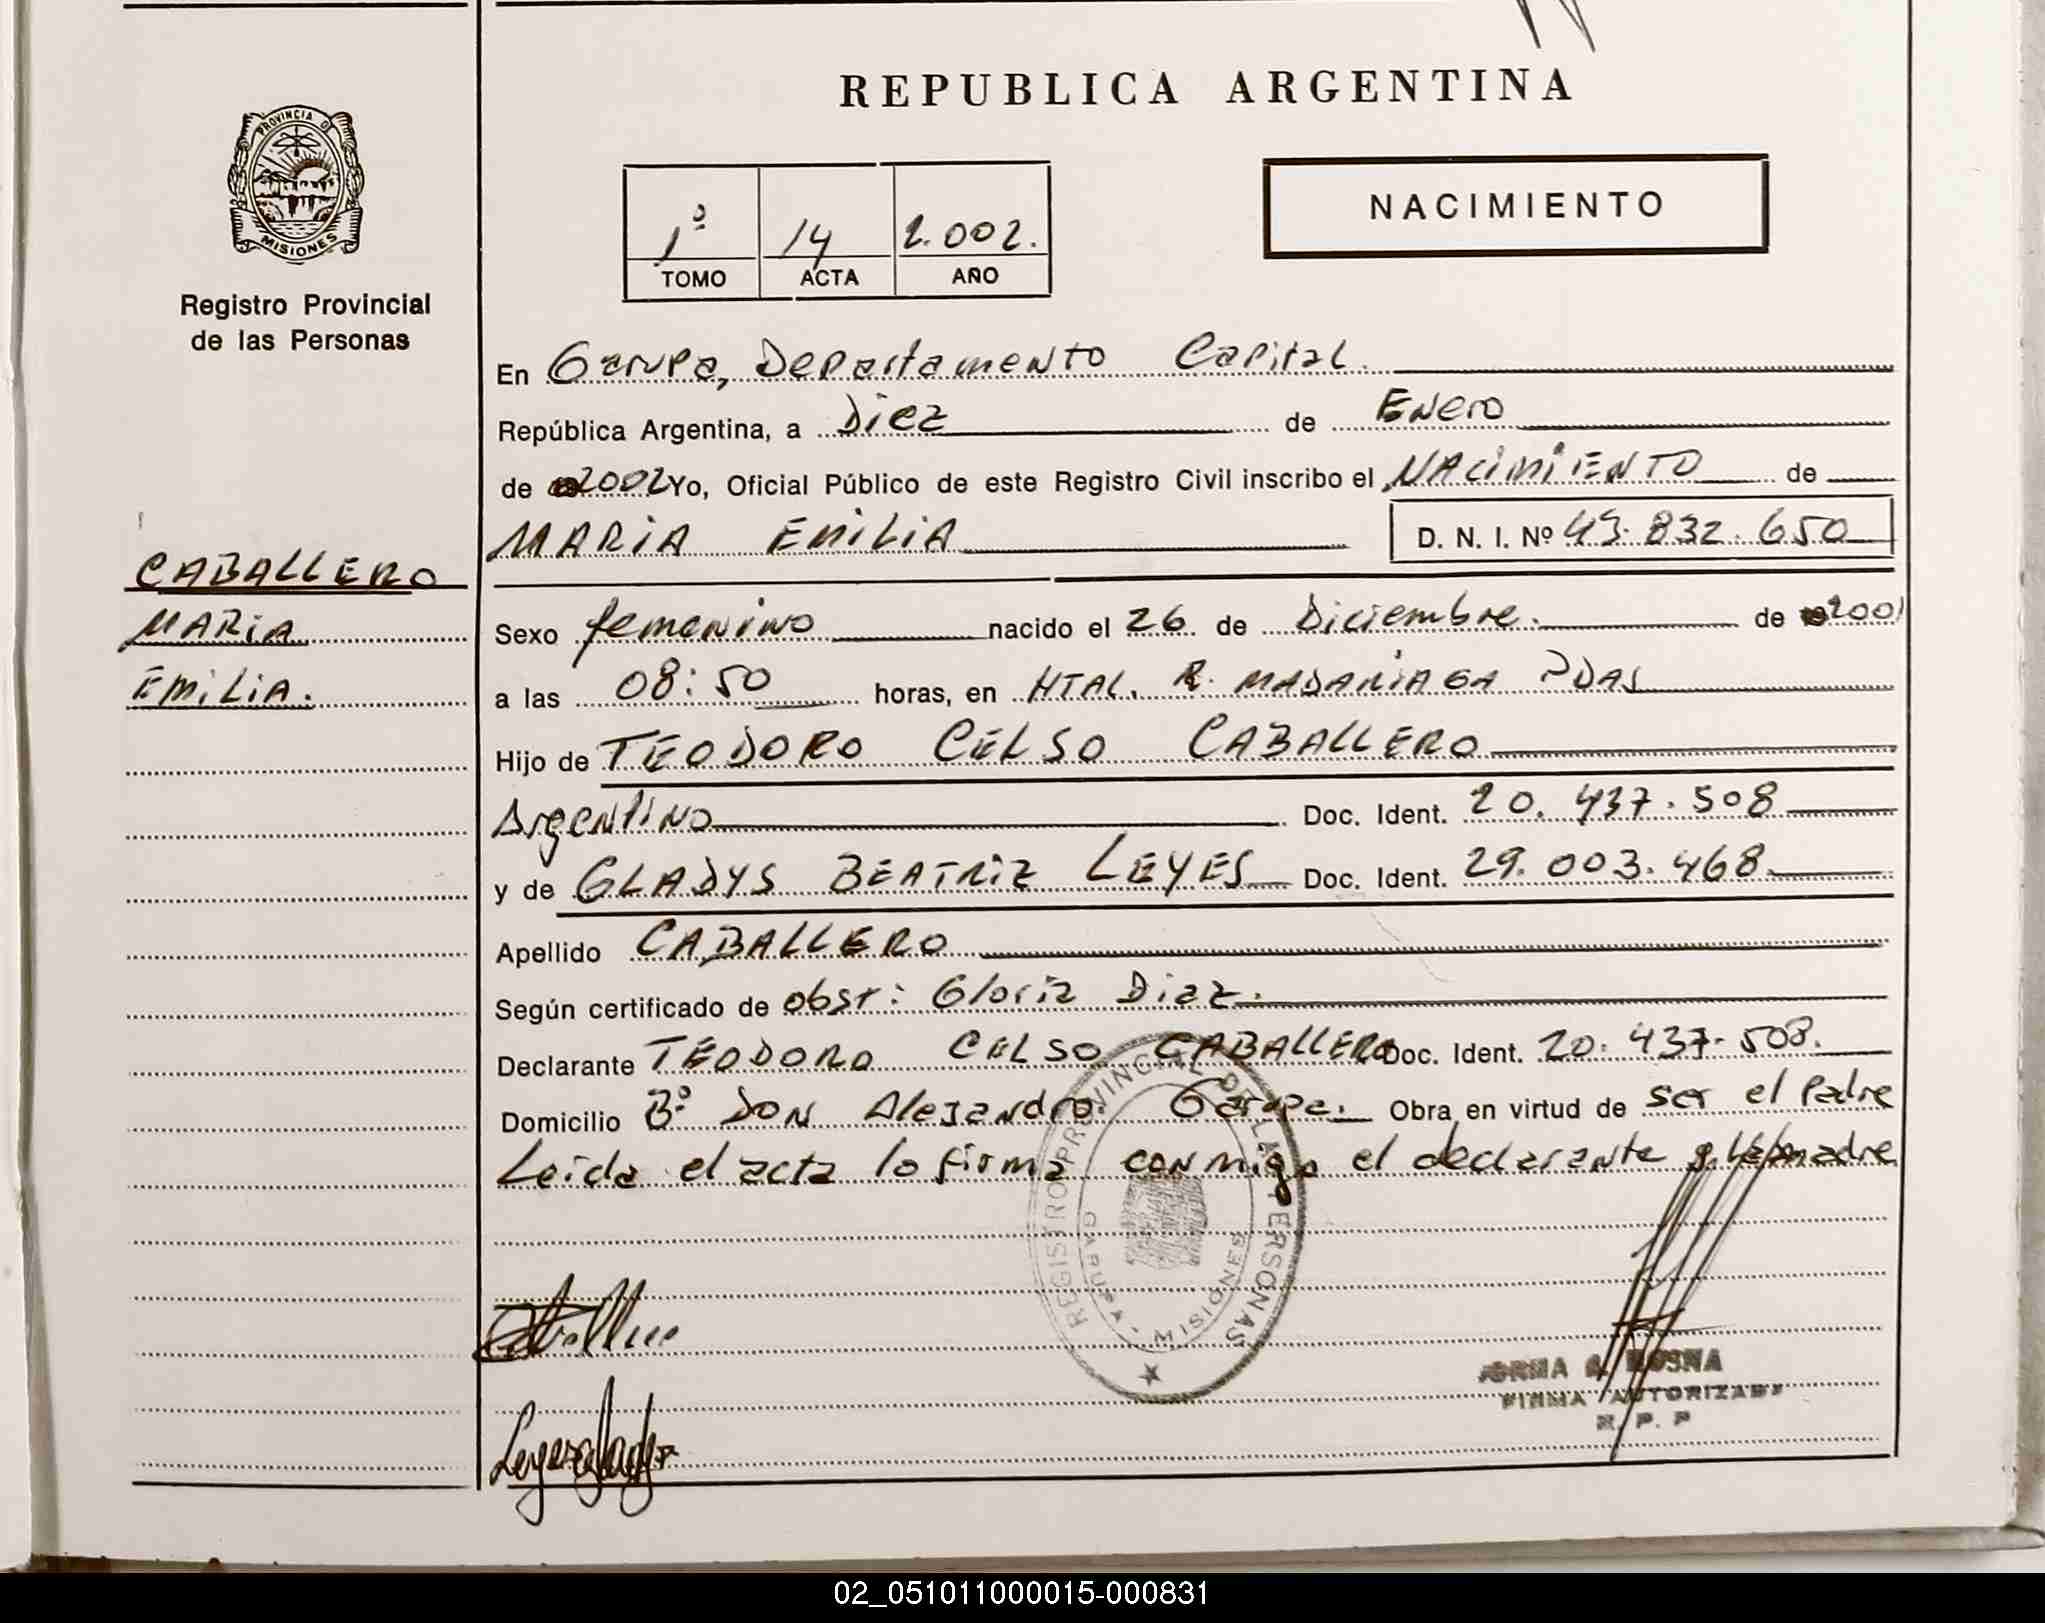 REPUBLICA ARGENTINA
PROVINCIA D
MISIONES
Registro Provincial
de las Personas
NACIMIENTO
1º 14 2.002.
TOMO ACTA AÑO
En Garupa, Departamento Capital.
República Argentina, a Diez de Enero
de 2002 Yo, Oficial Público de este Registro Civil inscribo el NACIMIENTO de
MARIA EMILIA D. N. I. Nº 43.832.650
CABALLERO
MARIA
EMILIA.
Sexo femenino nacido el 26 de Diciembre. de 2001
a las 08:50 horas, en HTAL. R. MADARIAGA PDAS
Hijo de TEODORO CELSO CABALLERO
Argentino Doc. Ident. 20.437.508
y de GLADYS BEATRIZ LEYES Doc. Ident. 29.003.468
Apellido CABALLERO
Según certificado de obst: Gloria Diaz.
Declarante TEODORO CELSO CABALLERO Doc. Ident. 20.437.508.
Domicilio Bº DON Alejandro. Garupa. Obra en virtud de ser el Padre
Leida el acta lo firma conmigo el declarante y la madre
REGISTRO PROVINCIAL DE LAS PERSONAS
GARUPA - MISIONES
FIRMA AUTORIZADA
R. P. P
02_051011000015-000831